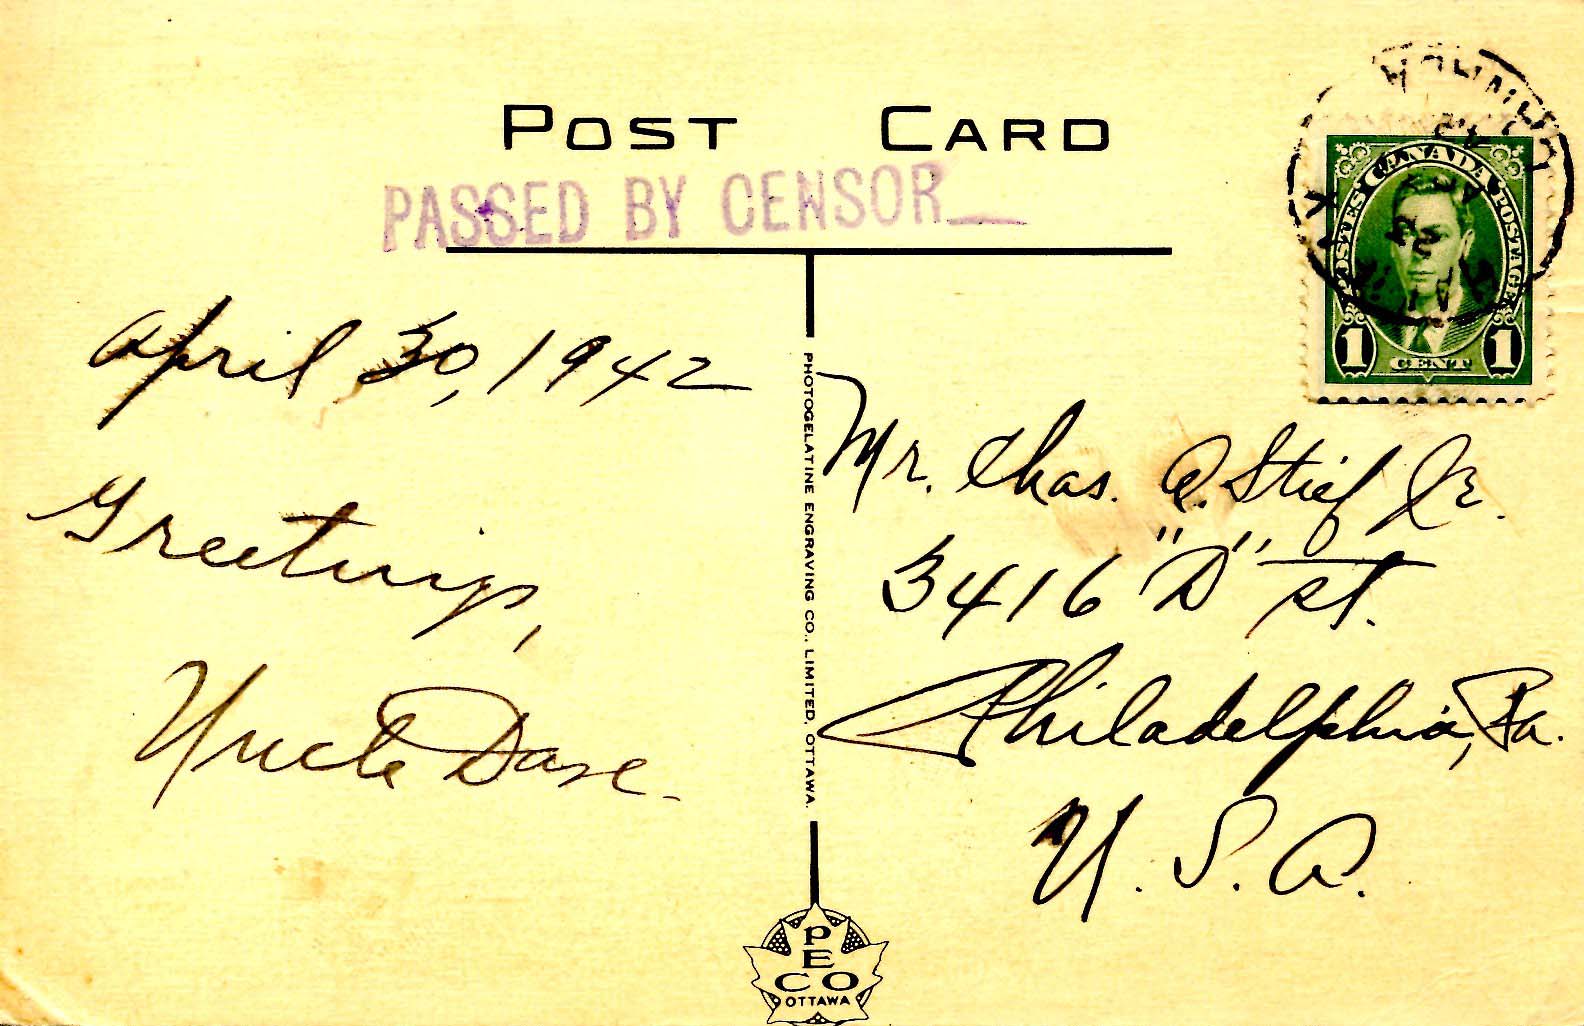 POST CARD
PASSED BY CENSOR
CANADA
POSTES POSTAGE
1 CENT 1
April 30, 1942
Greetings,
Uncle Dave.
Mr. Chas. A. Stief Jr.
3416 "D" St.
Philadelphia, Pa.
U. S. A.
PHOTOGELATINE ENGRAVING CO., LIMITED, OTTAWA.
PECO
OTTAWA